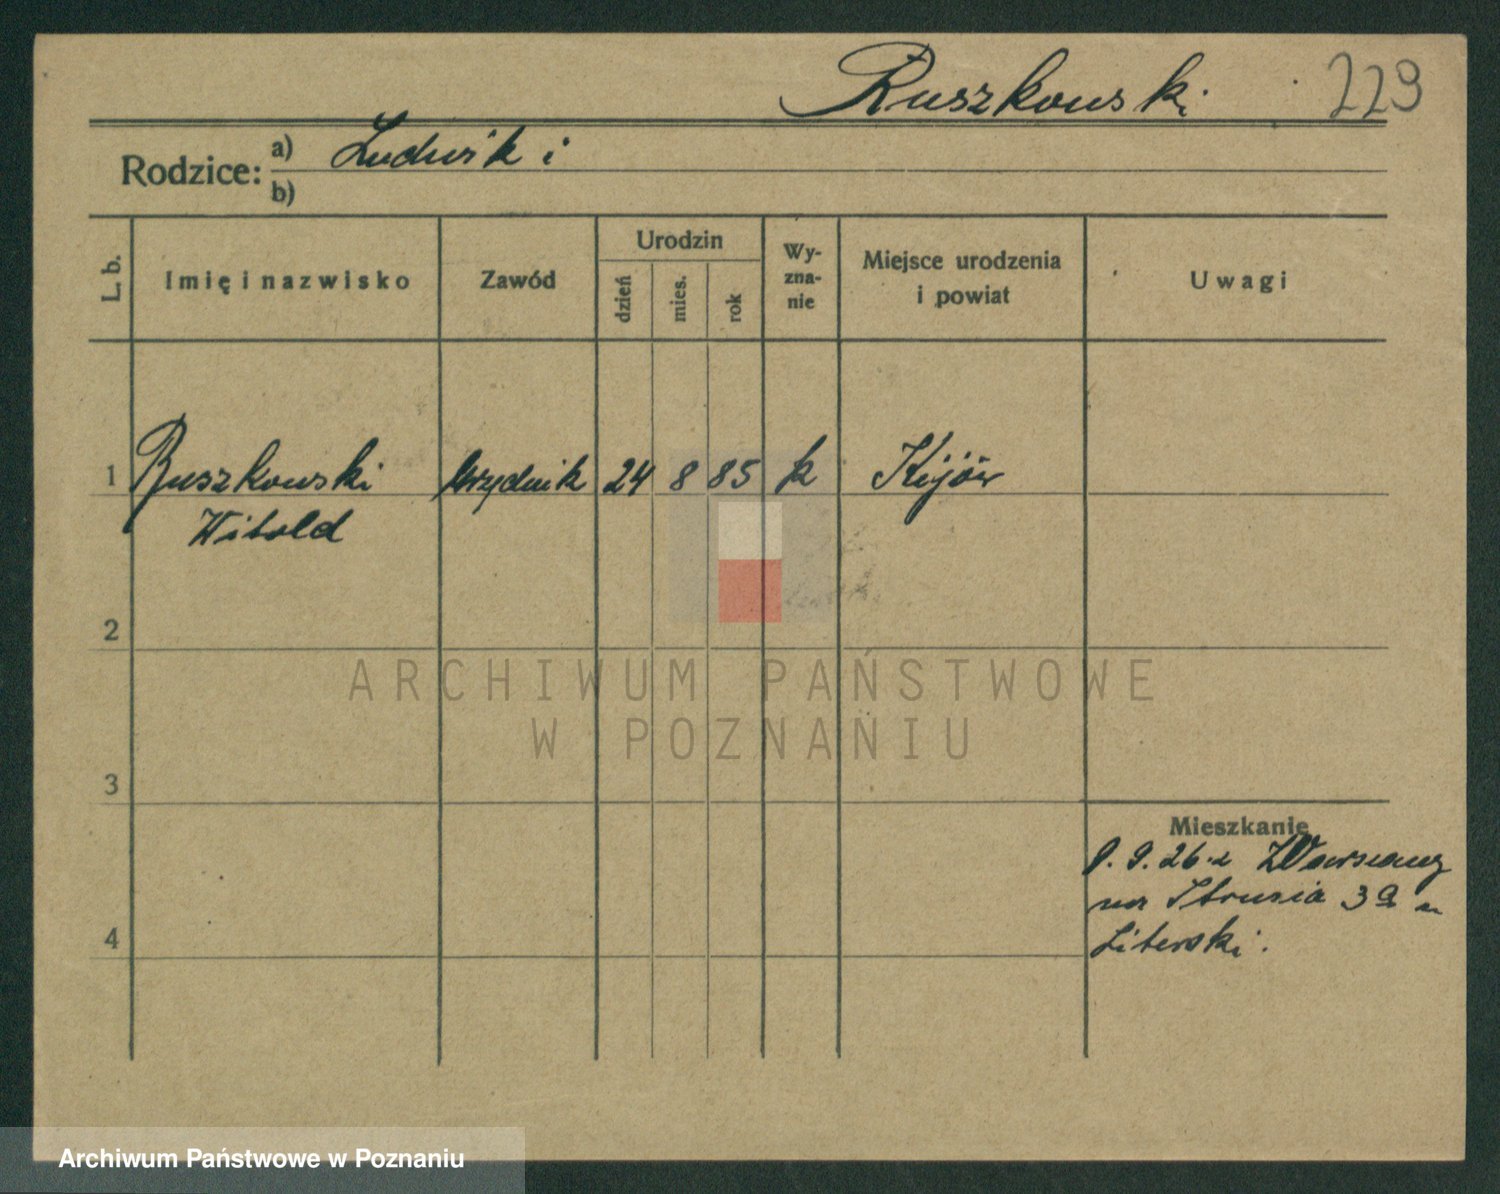 Ruszkowski 229
Rodzice: a) Ludwik i
b)
L. b. Imię i nazwisko Zawód Urodzin dzień mies. rok Wyznanie Miejsce urodzenia i powiat Uwagi
1 Ruszkowski urzędnik 24 8 85 k Kijów
Witold
2
3
4
Mieszkanie
9. 26 z Warszawy
na Strusia 3a u
Literski.
ARCHIWUM PAŃSTWOWE
W POZNANIU
Archiwum Państwowe w Poznaniu